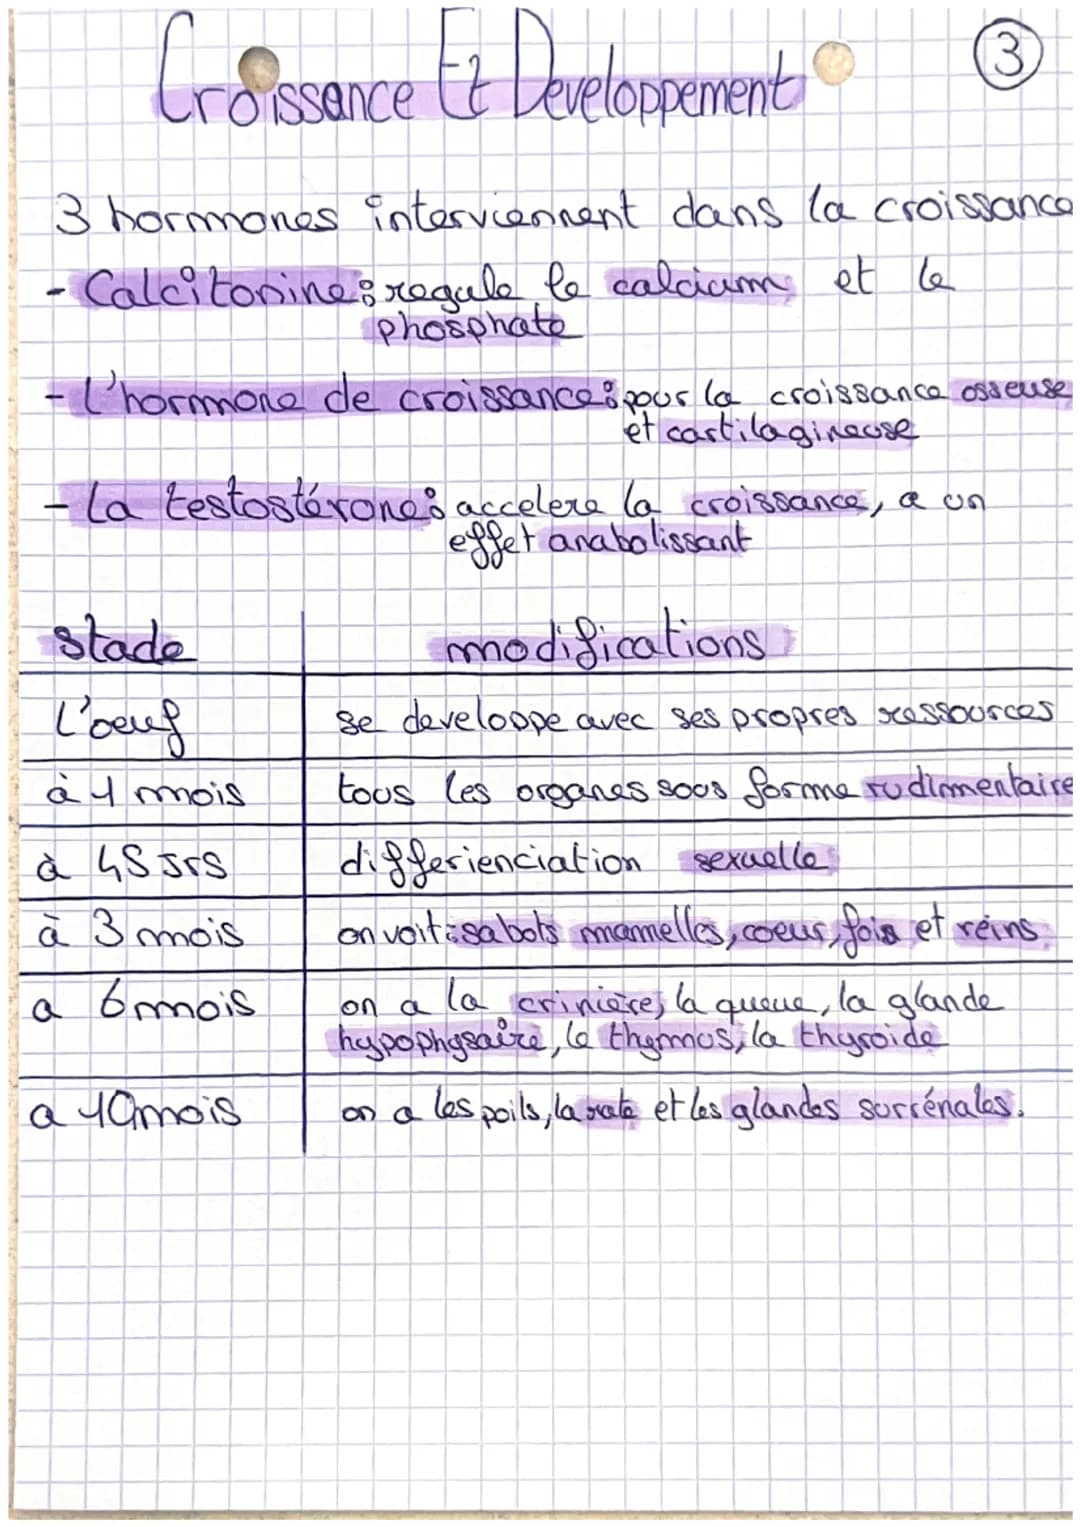 Croissance Et Developpement
3
3 hormones interviennent dans la croissance
- Calcitonine: regule le calcium et le
phosphate
- L'hormone de croissance: pour la croissance osseuse
et cartilagineuse
- La testostérone: accelere la croissance, a un
effet anabolissant
stade modifications
L'oeuf se developpe avec ses propres ressources
à 1 mois tous les organes sous forme rudimentaire
à 45 Jrs differienciation sexuelle
à 3 mois on voit: sabots mamelles, coeur, foie et reins
a 6 mois on a la crinière, la queue, la glande
hypophysaire, le thymus, la thyroide
a 10 mois on a les poils, la rate et les glandes surrénales.